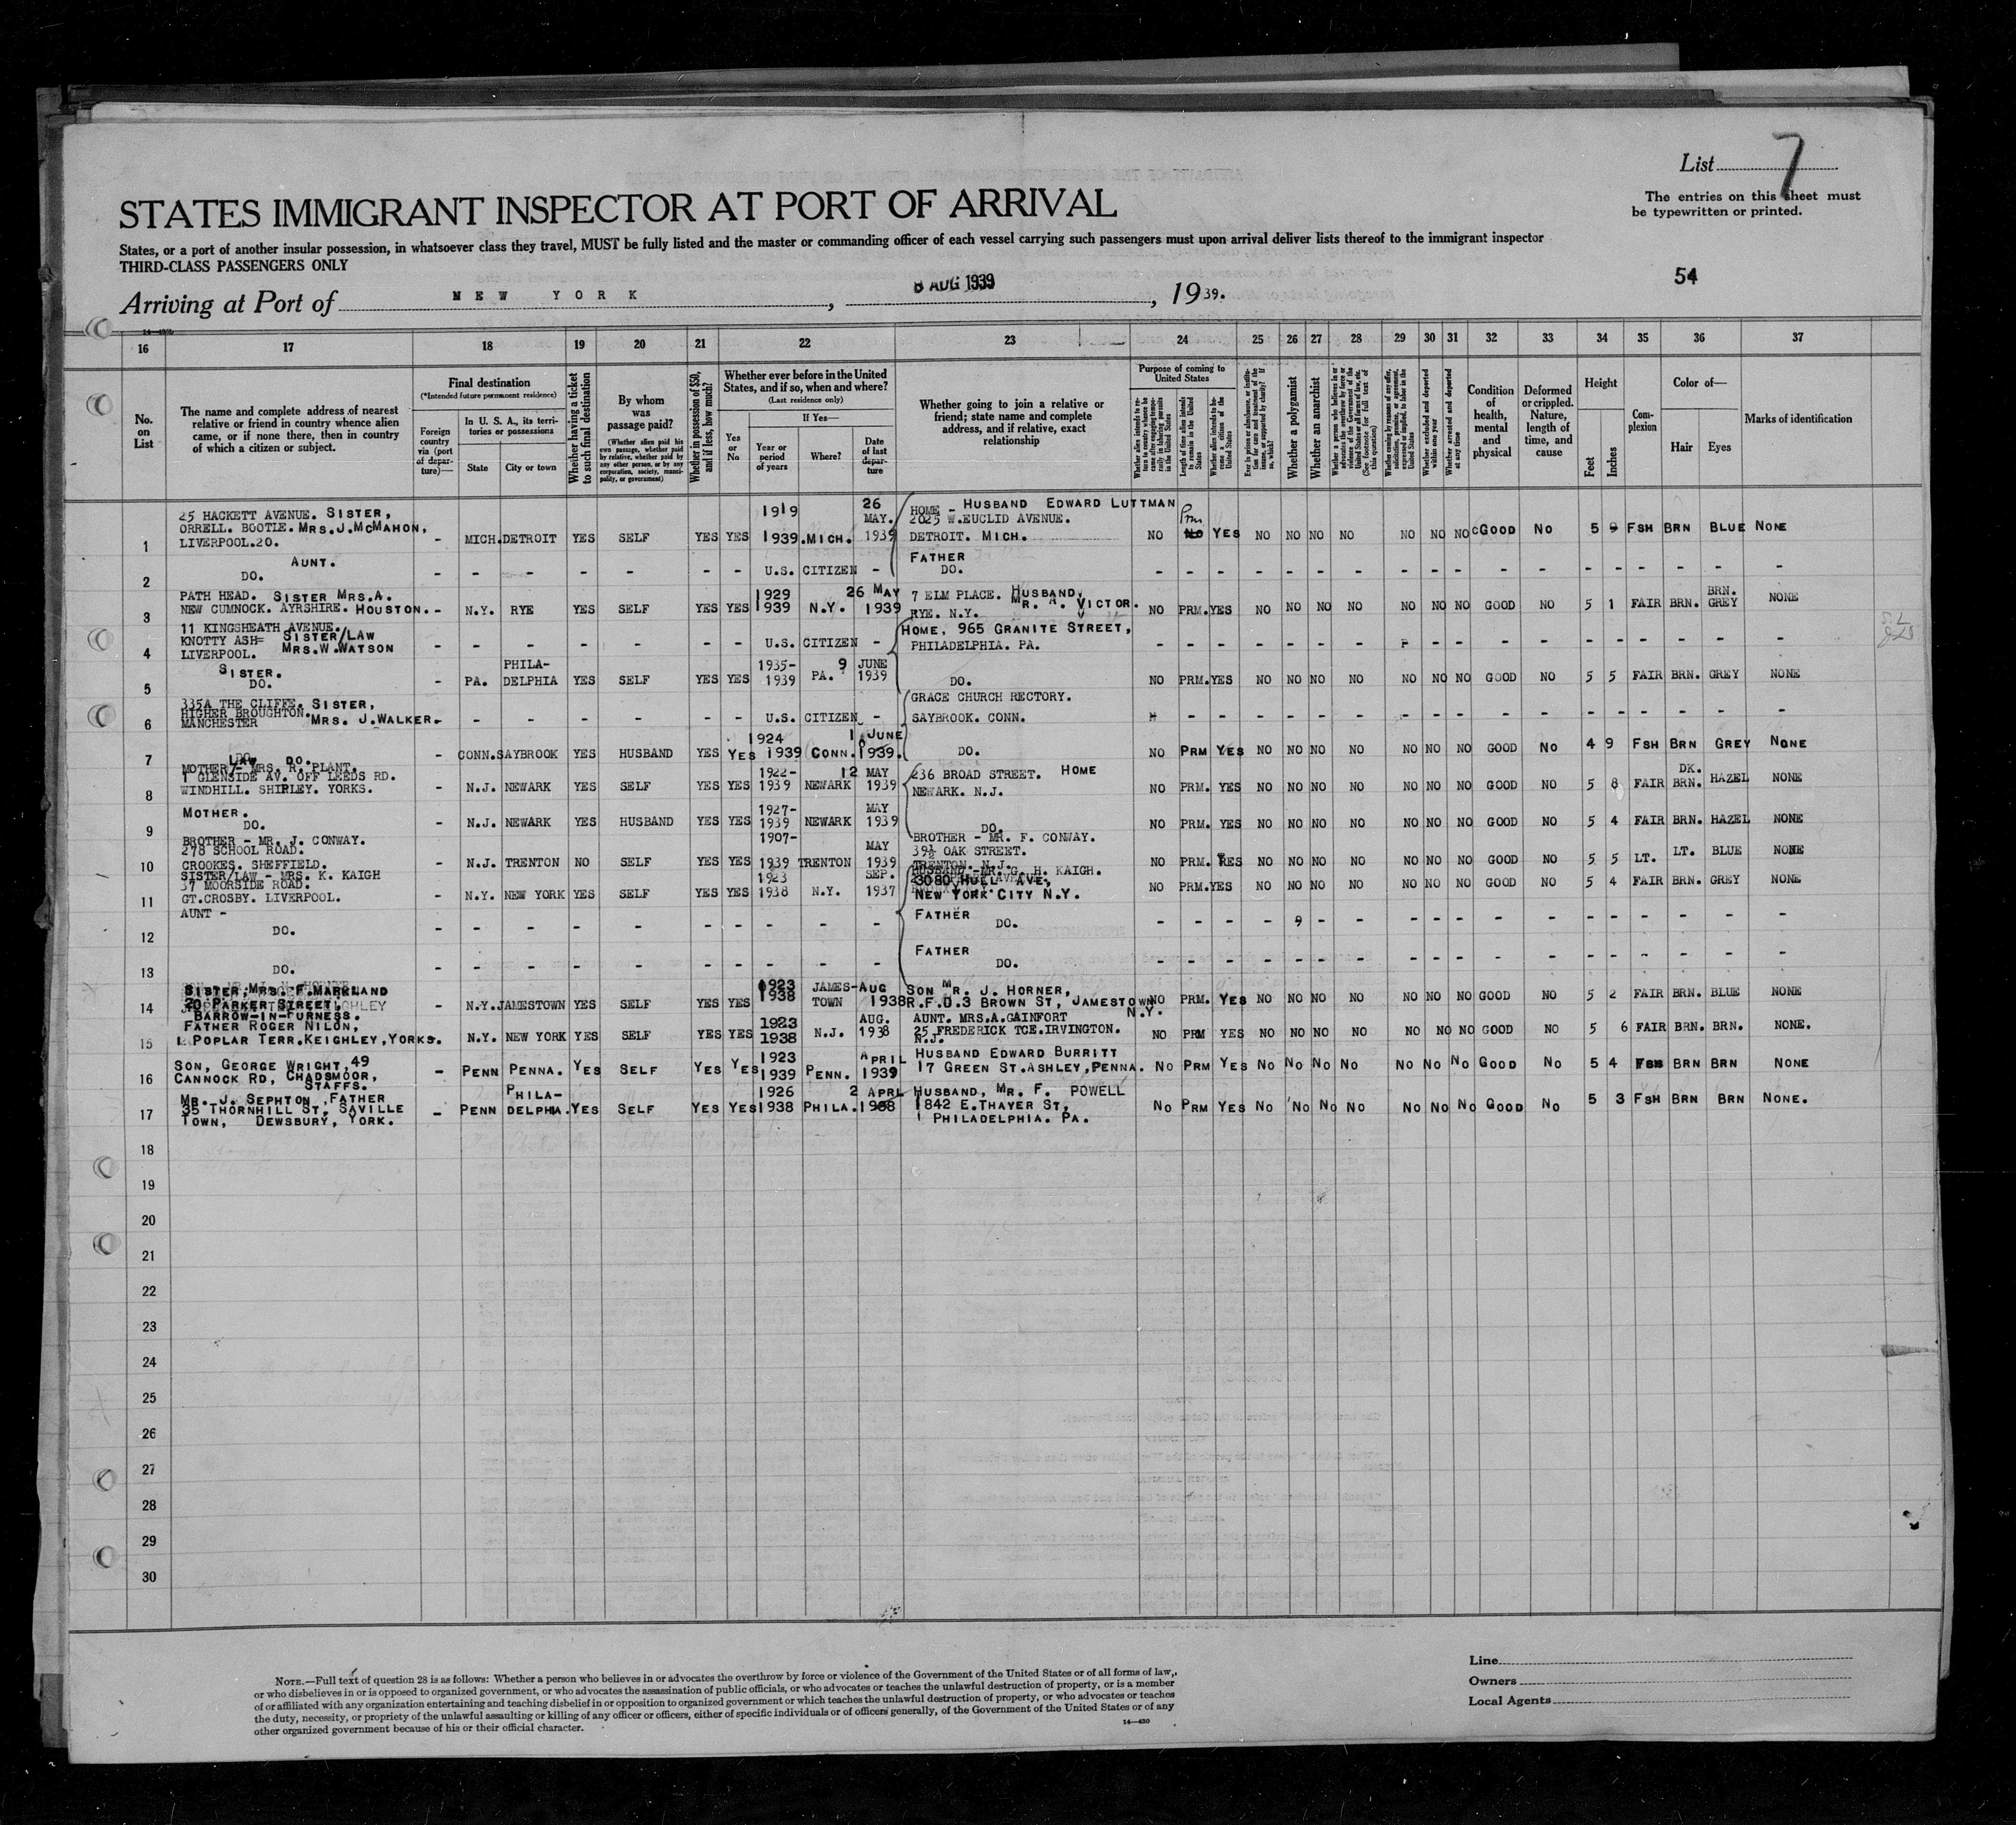 List 7
The entries on this sheet must
be typewritten or printed.
STATES IMMIGRANT INSPECTOR AT PORT OF ARRIVAL
States, or a port of another insular possession, in whatsoever class they travel, MUST be fully listed and the master or commanding officer of each vessel carrying such passengers must upon arrival deliver lists thereof to the immigrant inspector
THIRD-CLASS PASSENGERS ONLY
54
Arriving at Port of NEW YORK, 8 AUG 1939, 1939.
16 17 18 19 20 21 22 23 24 25 26 27 28 29 30 31 32 33 34 35 36 37
No. on List
The name and complete address of nearest relative or friend in country whence alien came, or if none there, then in country of which a citizen or subject.
Final destination
(*Intended future permanent residence)
Foreign country via (port of departure)—
In U. S. A., its territories or possessions
State
City or town
Whether having a ticket to such final destination
By whom was passage paid?
(Whether alien paid his own passage, whether paid by relative, whether paid by any other person, or by any corporation, society, municipality, or government)
Whether in possession of $50, and if less, how much?
Whether ever before in the United States, and if so, when and where?
(Last residence only)
Yes or No
If Yes—
Year or period of years
Where?
Date of last departure
Whether going to join a relative or friend; state name and complete address, and if relative, exact relationship
Purpose of coming to United States
Length of time alien intends to remain in the United States
Whether alien intends to become a citizen of the United States
Whether a polygamist
Whether an anarchist
(See footnote for full text of this question)
Whether excluded and deported within one year
Whether arrested and deported at any time
Condition of health, mental and physical
Deformed or crippled. Nature, length of time, and cause
Height
Feet
Inches
Complexion
Color of—
Hair
Eyes
Marks of identification
1 25 HACKETT AVENUE. SISTER, ORRELL. BOOTLE. MRS. J. MCMAHON, LIVERPOOL.20. - MICH. DETROIT YES SELF YES YES 1919 1939. MICH. 26 MAY. 1939 HOME - HUSBAND EDWARD LUTTMAN 2025 W. EUCLID AVENUE. DETROIT. MICH. NO Prm YES NO NO NO NO NO NO NO GOOD NO 5 9 FSH BRN BLUE NONE
2 AUNT. DO. - - - - - - - U.S. CITIZEN - FATHER DO. - - - - - - - - - - - - - - - - - - -
3 PATH HEAD. SISTER MRS. A. NEW CUMNOCK. AYRSHIRE. HOUSTON. - N.Y. RYE YES SELF YES YES 1929 1939 N.Y. 26 MAY 1939 7 ELM PLACE. HUSBAND, MR. A. VICTOR. RYE. N.Y. NO PRM. YES NO NO NO NO NO NO NO GOOD NO 5 1 FAIR BRN. BRN. GREY NONE
4 11 KINGSHEATH AVENUE. KNOTTY ASH= SISTER/LAW LIVERPOOL. MRS. W. WATSON - - - - - - - U.S. CITIZEN - HOME, 965 GRANITE STREET, PHILADELPHIA. PA. - - - - - - - - - - - - - - - - - -
5 SISTER. DO. - PA. PHILADELPHIA YES SELF YES YES 1935- 1939 PA. 9 JUNE 1939 DO. NO PRM. YES NO NO NO NO NO NO NO GOOD NO 5 5 FAIR BRN. GREY NONE
6 335A THE CLIFFE. SISTER, HIGHER BROUGHTON. MANCHESTER MRS. J. WALKER. - - - - - - - U.S. CITIZEN - GRACE CHURCH RECTORY. SAYBROOK. CONN. - - - - - - - - - - - - - - - - - -
7 LAW DO. - CONN. SAYBROOK YES HUSBAND YES YES 1924 1939 CONN. 1 JUNE 1939. DO. NO PRM YES NO NO NO NO NO NO NO GOOD NO 4 9 FSH BRN GREY NONE
8 MOTHER/- MRS. R. PLANT. 1 GLENSIDE AV. OFF LEEDS RD. WINDHILL. SHIPLEY. YORKS. - N.J. NEWARK YES SELF YES YES 1922- 1939 NEWARK 12 MAY 1939 236 BROAD STREET. HOME NEWARK. N.J. NO PRM. YES NO NO NO NO NO NO NO GOOD NO 5 8 FAIR DK. BRN. HAZEL NONE
9 MOTHER. DO. - N.J. NEWARK YES HUSBAND YES YES 1927- 1939 NEWARK MAY 1939 DO. NO PRM. YES NO NO NO NO NO NO NO GOOD NO 5 4 FAIR BRN. HAZEL NONE
10 BROTHER - MR. J. CONWAY. 278 SCHOOL ROAD. CROOKES. SHEFFIELD. - N.J. TRENTON NO SELF YES YES 1907- 1939 TRENTON MAY 1939 BROTHER - MR. F. CONWAY. 39½ OAK STREET. TRENTON. N.J. NO PRM. YES NO NO NO NO NO NO NO GOOD NO 5 5 LT. LT. BLUE NONE
11 SISTER/LAW - MRS. K. KAIGH 37 MOORSIDE ROAD. GT. CROSBY. LIVERPOOL. - N.Y. NEW YORK YES SELF YES YES 1923 1938 N.Y. SEP. 1937 HUSBAND - MR. G. H. KAIGH. 3080 HULL AVE, NEW YORK CITY N.Y. NO PRM. YES NO NO NO NO NO NO NO GOOD NO 5 4 FAIR BRN. GREY NONE
12 AUNT - DO. - - - - - - - - - - FATHER DO. - - - - - - - - - - - - - - - - - -
13 DO. - - - - - - - - - - FATHER DO. - - - - - - - - - - - - - - - - - -
14 SISTER, MRS. F. MARKLAND 20 PARKER STREET, BARROW-IN-FURNESS. - N.Y. JAMESTOWN YES SELF YES YES 1923 1938 JAMESTOWN AUG 1938 SON MR. J. HORNER, R.F.D.3 BROWN ST, JAMESTOWN N.Y. NO PRM. YES NO NO NO NO NO NO NO GOOD NO 5 2 FAIR BRN. BLUE NONE
15 FATHER ROGER NILON, 1. POPLAR TERR. KEIGHLEY, YORKS. N.Y. NEW YORK YES SELF YES YES 1923 1938 N.J. AUG. 1938 AUNT. MRS. A. GAINFORT 25 FREDERICK TCE. IRVINGTON. N.J. NO PRM YES NO NO NO NO NO NO NO GOOD NO 5 6 FAIR BRN. BRN. NONE.
16 SON, GEORGE WRIGHT, 49 CANNOCK RD, CHADSMOOR, STAFFS. - PENN PENNA. YES SELF YES YES 1923 1939 PENN. APRIL 1939 HUSBAND EDWARD BURRITT 17 GREEN ST. ASHLEY, PENNA. NO PRM YES NO NO NO NO NO NO NO GOOD NO 5 4 FSH BRN BRN NONE
17 MR. J. SEPHTON, FATHER 35 THORNHILL ST, SAVILLE TOWN, DEWSBURY, YORK. - PENN PHILADELPHIA. YES SELF YES YES 1926 1938 PHILA. 2 APRL 1938 HUSBAND, MR. F. POWELL 1842 E. THAYER ST, PHILADELPHIA. PA. NO PRM YES NO NO NO NO NO NO NO GOOD NO 5 3 FSH BRN BRN NONE.
18
19
20
21
22
23
24
25
26
27
28
29
30
NOTE.—Full text of question 28 is as follows: Whether a person who believes in or advocates the overthrow by force or violence of the Government of the United States or of all forms of law,
or who disbelieves in or is opposed to organized government, or who advocates the assassination of public officials, or who advocates or teaches the unlawful destruction of property, or is a member
of or affiliated with any organization entertaining and teaching disbelief in or opposition to organized government or which teaches the unlawful destruction of property, or who advocates or teaches
the duty, necessity, or propriety of the unlawful assaulting or killing of any officer or officers, either of specific individuals or of officers generally, of the Government of the United States or of any
other organized government because of his or their official character.
14—430
Line
Owners
Local Agents